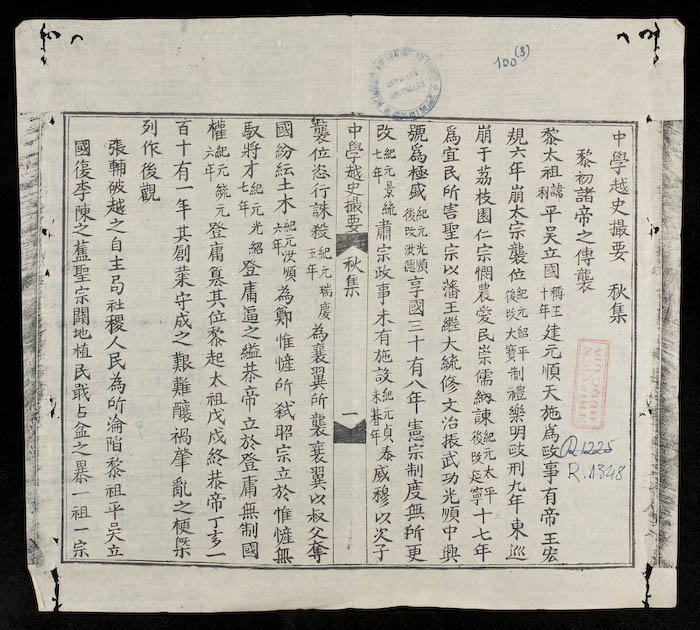 100 (3)
中學越史撮要 秋集
黎初諸帝之傳襲
黎太祖諱利平吳立國稱王十年建元順天施為政事有帝王宏
規六年崩太宗襲位紀元紹平後改大寶制禮樂明政刑九年東巡
崩于荔枝園仁宗憫農愛民崇儒納諫紀元太平後改延寧十七年
為宜民所害聖宗以藩王繼大統修文治振武功光順中興
號為極盛紀元光順後改洪德享國三十有八年憲宗制度無所更
改紀元景統七年肅宗政事未有施設紀元貞泰未朞年威穆以次子
中學越史撮要 秋集 一
襲位恣行誅殺紀元瑞慶五年為襄翼所襲襄翼以叔父奪
國紛紜土木紀元洪順六年為鄭惟㦃所弑昭宗立於惟㦃無
馭將才紀元光紹七年登庸逼之繼恭帝立於登庸無制國
權紀元統元六年登庸篡其位黎起太祖戊戌終恭帝丁亥一
百十有一年其創業守成之艱難釀禍肇亂之梗槩
列作後觀
張輔破越之自主局社稷人民為所淪陷黎祖平吳立
國復李陳之舊聖宗闢地植民戡占盆之暴一祖一宗
THƯ VIỆN
QUỐC GIA
R.1225
R.1848